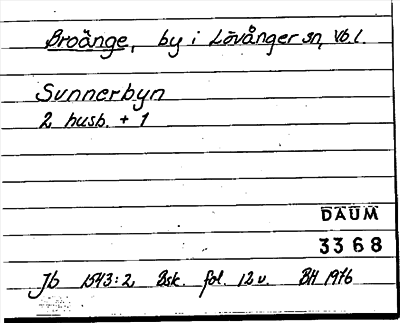 Broänge, by i Lövånger sn, Vb.l.
Sunnerbyn
2 husb. + 1
DAUM
3368
Jb 1543:2 Bsk. fol. 12 v. BH 1976